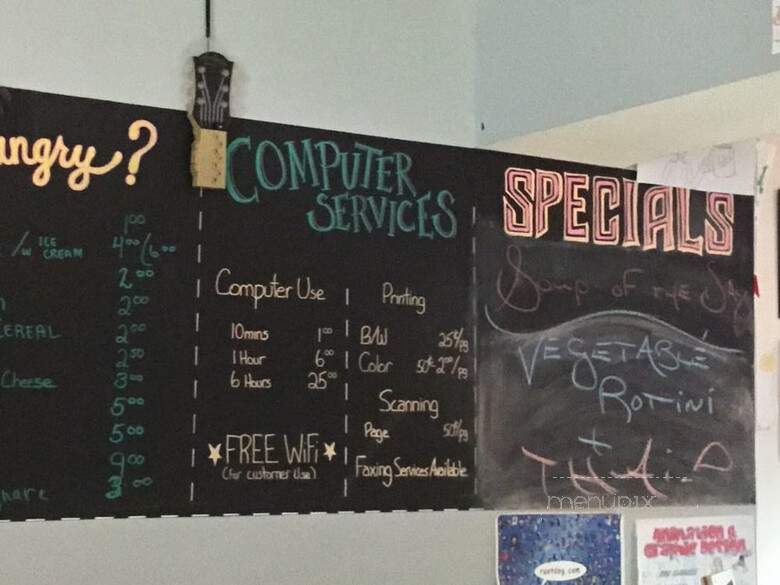 ngry?
1.00
/w ICE CREAM 4.00/6.00
2.00
2.00
CEREAL 2.00
2.50
Cheese 3.00
5.00
5.00
9.00
3.00
COMPUTER
SERVICES
Computer Use
10mins 1.00
1 Hour 6.00
6 Hours 25.00
★FREE WiFi★
(for customer use)
Printing
B/W 25¢/pg
Color 50¢-2.00/pg
Scanning
Page 50¢/pg
Faxing Services Available
SPECIALS
Soup of the Day
VEGETABLE
ROTINI
+
THAI
menupix